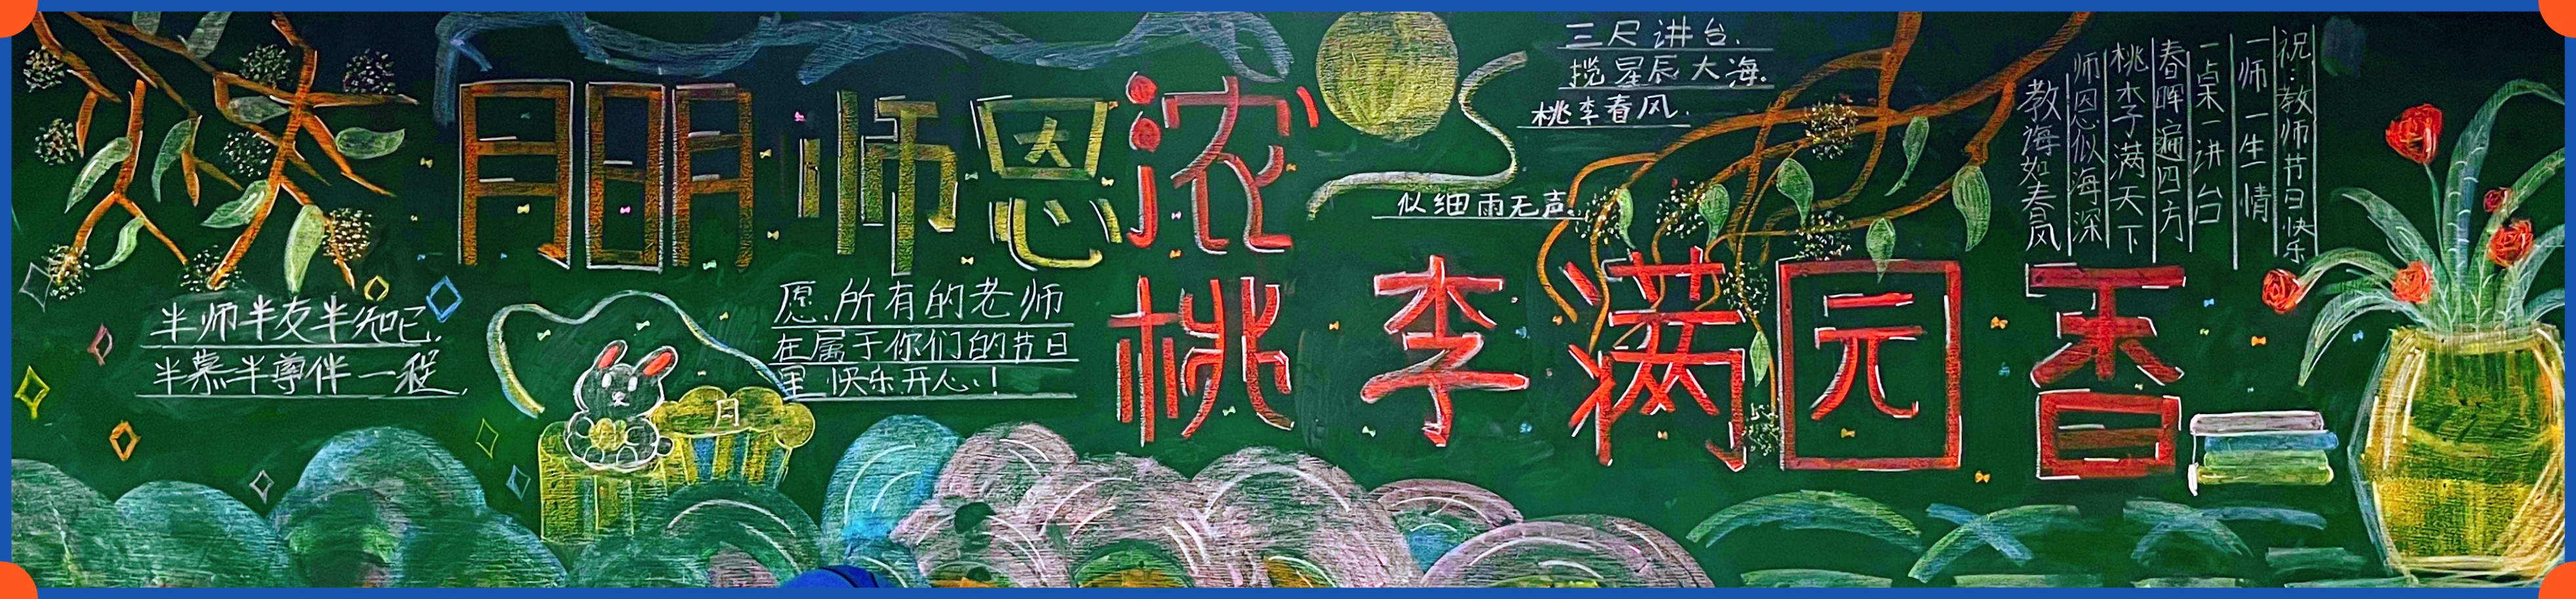 月明师恩浓
桃李满园香
半师半友半知己.
半慕半尊伴一程.
愿.所有的老师
在属于你们的节日
里 快乐开心.!
月
三尺讲台.
揽星辰大海.
桃李春风.
似细雨无声.
祝:教师节日快乐
一师一生情
一桌一讲台
春晖遍四方
桃李满天下
师恩似海深
教海如春风